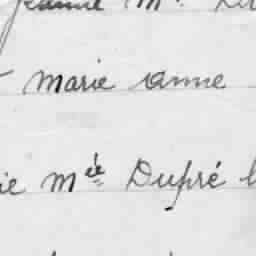 Jeanne M.
Marie Anne
ie Mée Dupré